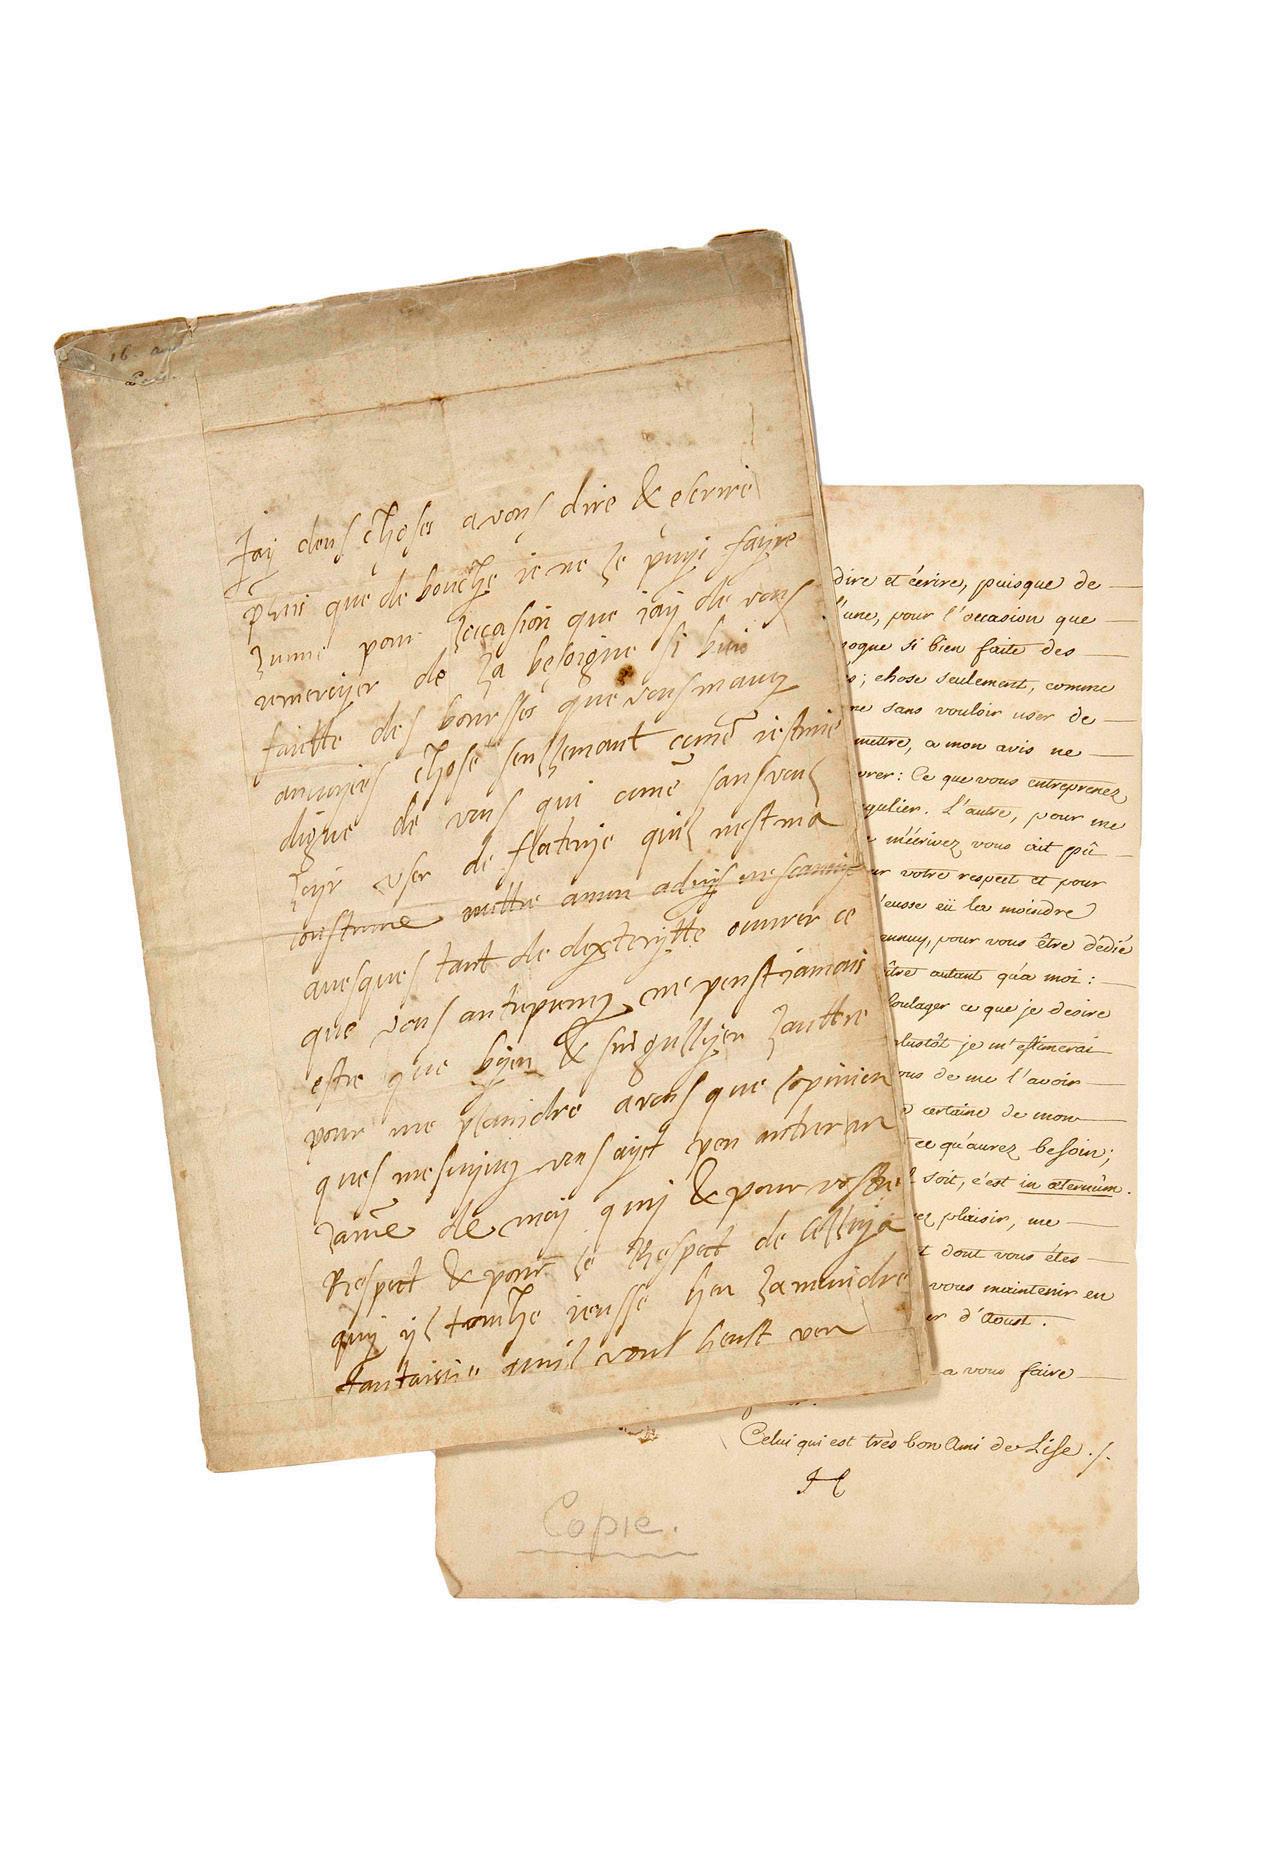 16
Jay deus choses a vous dire & escrire
puis que de bouche ie ne le puys fayre
lunne pour loccasion que iay de vous
remercyer de la besoigne si bien
faictte des boursses que vous mauez
anvoyees chose seullemant come iestime
digne de vous qui come sans voul
loyr user de flaterye quy nest ma
coustume mettre amon advys ne scauriez
avesques tant de dexterytte ouvrer ce
que vous antreprenez ne peust iamais
estre que byen & singullyer lauttre
pour me plaindre a vous que lopinion
ques mescryvez vous ayt peu antrer an
lame de moy quy & pour vostre
Respect & pour le Respect de celluy a
quy yl touche ieusse heu la moindre
fantaisie quil vous heust peu
dire et écrire, puisque de
l'une, pour l'occasion que
si bien faite des
; chose seulement, comme
sans vouloir user de
mettre, a mon avis ne
: Ce que vous entreprenez
gulier. L'autre, pour me
m'écrivez vous ait pû
votre respect et pour
j'eusse eü la moindre
ennuy, pour vous être dédié
être autant qu'a moi :
soulager ce que je desire
plustôt je m'estimerai
vous de me l'avoir
certaine de mon
ce qu'aurez besoin;
soit, c'est in æternum.
plaisir, me
dont vous étes
vous maintenir en
d'Aoust.
a vous faire
Celui qui est très bon Ami de Lise ./.
H
Copie.